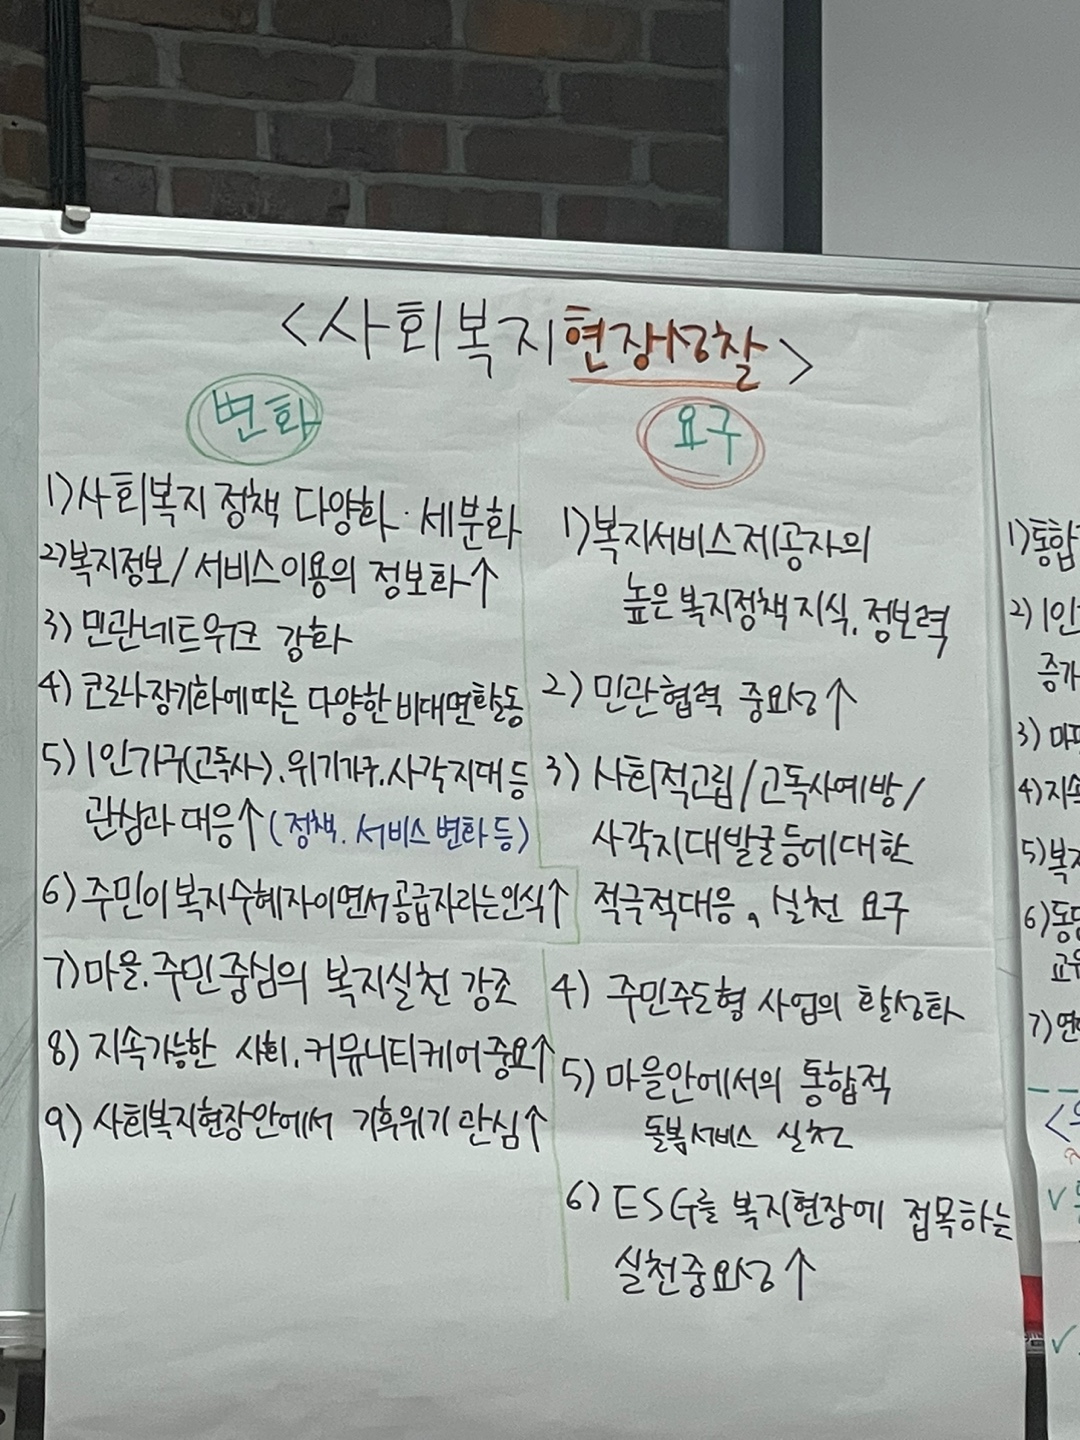 <사회복지현장성찰>
변화
1)사회복지 정책 다양화·세분화
2)복지정보/서비스이용의 정보화↑
3) 민관네트워크 강화
4) 코로나장기화에따른 다양한 비대면활동
5) 1인가구(고독사).위기가구.사각지대 등
관심과 대응↑(정책.서비스 변화 등)
6) 주민이 복지수혜자이면서 공급자라는인식↑
7)마을.주민 중심의 복지실천 강조
8) 지속가능한 사회.커뮤니티케어중요↑
9) 사회복지현장안에서 기후위기 관심↑
요구
1)복지서비스제공자의
높은 복지정책 지식.정보력
2) 민관협력 중요성↑
3) 사회적고립/고독사예방/
사각지대발굴등에대한
적극적대응, 실천 요구
4) 주민주도형 사업의 활성화
5) 마을안에서의 통합적
돌봄서비스 실천
6) ESG를 복지현장에 접목하는
실천중요성↑
1)통합
2) 1인
증가
3)
4)지속
5)복지
6)
7)